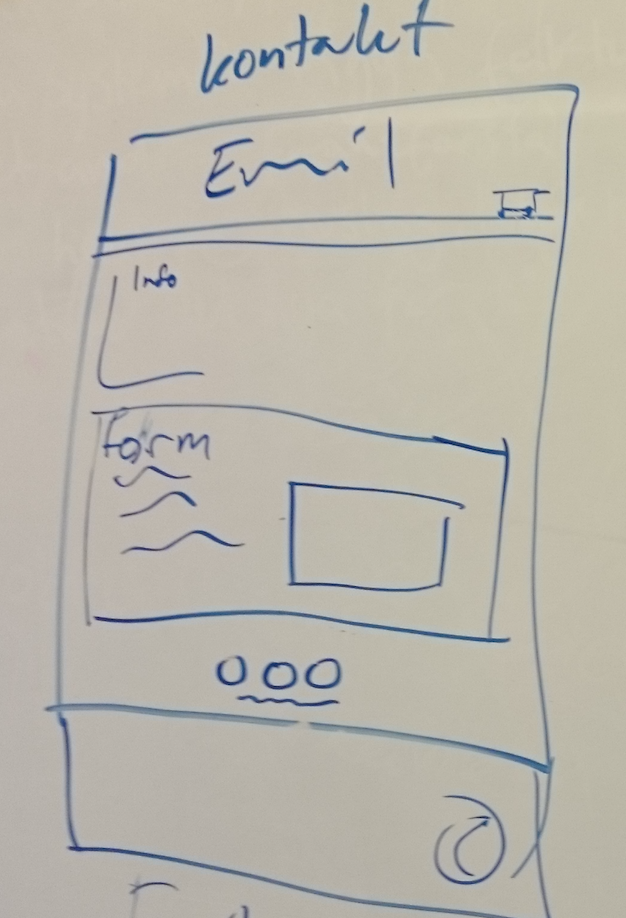 kontakt
Email
Info
Form